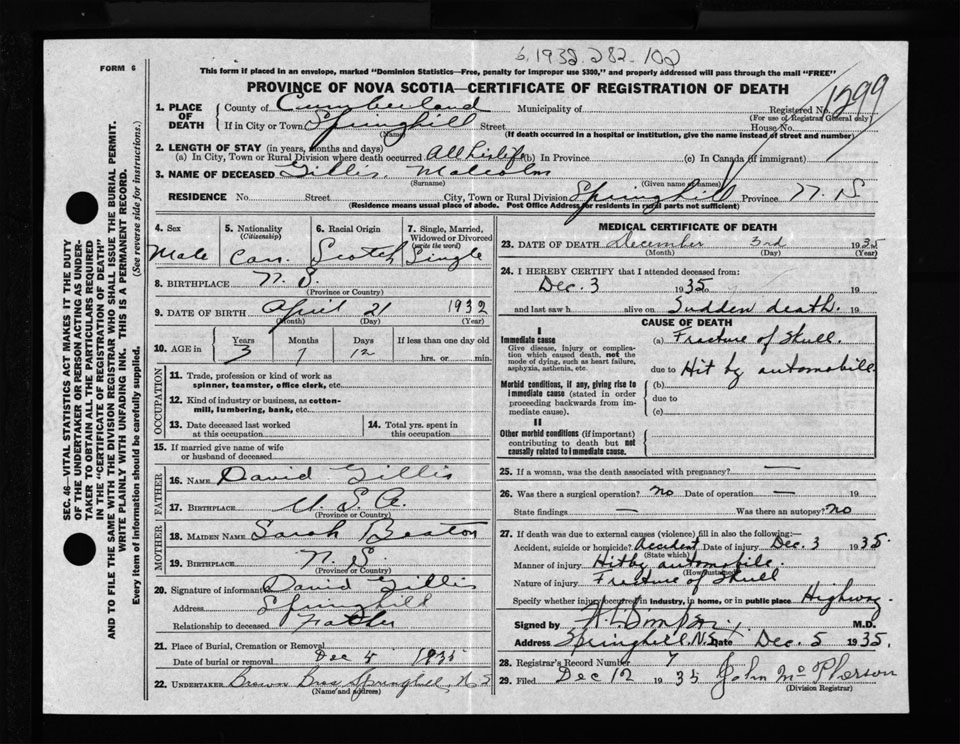 6. 1932. 282. 102
FORM 6
This form if placed in an envelope, marked "Dominion Statistics—Free, penalty for improper use $300," and properly addressed will pass through the mail "FREE"
PROVINCE OF NOVA SCOTIA—CERTIFICATE OF REGISTRATION OF DEATH
1. PLACE OF DEATH
County of Cumberland Municipality of Registered No. 1299
(For use of Registrar General only)
If in City or Town Springhill Street House No.
(Name) (If death occurred in a hospital or institution, give the name instead of street and number)
2. LENGTH OF STAY (in years, months and days)
(a) In City, Town or Rural Division where death occurred All his life (b) In Province (c) In Canada (if immigrant)
3. NAME OF DECEASED Gillis Malcolm
(Surname) (Given name or names)
RESIDENCE No. Street City, Town or Rural Division Springhill Province N. S
(Residence means usual place of abode. Post Office Address for residents in rural parts not sufficient)
4. Sex Male
5. Nationality (Citizenship) Can.
6. Racial Origin Scotch
7. Single, Married, Widowed or Divorced (write the word) Single
8. BIRTHPLACE N. S.
(Province or Country)
9. DATE OF BIRTH April 21 1932
(Month) (Day) (Year)
10. AGE in Years Months Days If less than one day old
3 7 12 hrs. or min.
OCCUPATION
11. Trade, profession or kind of work as spinner, teamster, office clerk, etc.
12. Kind of industry or business, as cotton-mill, lumbering, bank, etc.
13. Date deceased last worked at this occupation
14. Total yrs. spent in this occupation
15. If married give name of wife or husband of deceased
FATHER
16. NAME David Gillis
17. BIRTHPLACE U. S. A.
(Province or Country)
MOTHER
18. MAIDEN NAME Sarah Beaton
19. BIRTHPLACE N. S.
(Province or Country)
20. Signature of informant David Gillis
Address Springhill
Relationship to deceased Father
21. Place of Burial, Cremation or Removal
Date of burial or removal Dec 5 1935
22. UNDERTAKER Brown Bros Springhill, N S
(Name and address)
MEDICAL CERTIFICATE OF DEATH
23. DATE OF DEATH December 3rd 1935
(Month) (Day) (Year)
24. I HEREBY CERTIFY that I attended deceased from:
Dec. 3 1935 to 19
and last saw h alive on Sudden death. 19
CAUSE OF DEATH
I
Immediate cause
Give disease, injury or complication which caused death, not the mode of dying, such as heart failure, asphyxia, asthenia, etc.
(a) Fracture of Skull.
due to Hit by automobile
Morbid conditions, if any, giving rise to immediate cause (stated in order proceeding backwards from immediate cause).
(b)
due to
(c)
II
Other morbid conditions (if important) contributing to death but not causally related to immediate cause.
25. If a woman, was the death associated with pregnancy? —
26. Was there a surgical operation? No Date of operation — 19
State findings — Was there an autopsy? No
27. If death was due to external causes (violence) fill in also the following:—
Accident, suicide or homicide? Accident Date of injury Dec. 3 1935.
(State which)
Manner of injury Hit by automobile.
(How sustained)
Nature of injury Fracture of Skull
Specify whether injury occurred in industry, in home, or in public place Highway
Signed by M.D.
Address Springhill, N.S. Date Dec. 5 1935.
28. Registrar's Record Number 7
29. Filed Dec 12 1935 John McPherson
(Division Registrar)
SEC. 46—VITAL STATISTICS ACT MAKES IT THE DUTY
OF THE UNDERTAKER OR PERSON ACTING AS UNDER-
TAKER TO OBTAIN ALL THE PARTICULARS REQUIRED
IN THE "CERTIFICATE OF REGISTRATION OF DEATH"
AND TO FILE THE SAME WITH THE DIVISION REGISTRAR WHO SHALL ISSUE THE BURIAL PERMIT.
WRITE PLAINLY WITH UNFADING INK. THIS IS A PERMANENT RECORD.
Every item of information should be carefully supplied. (See reverse side for instructions.)